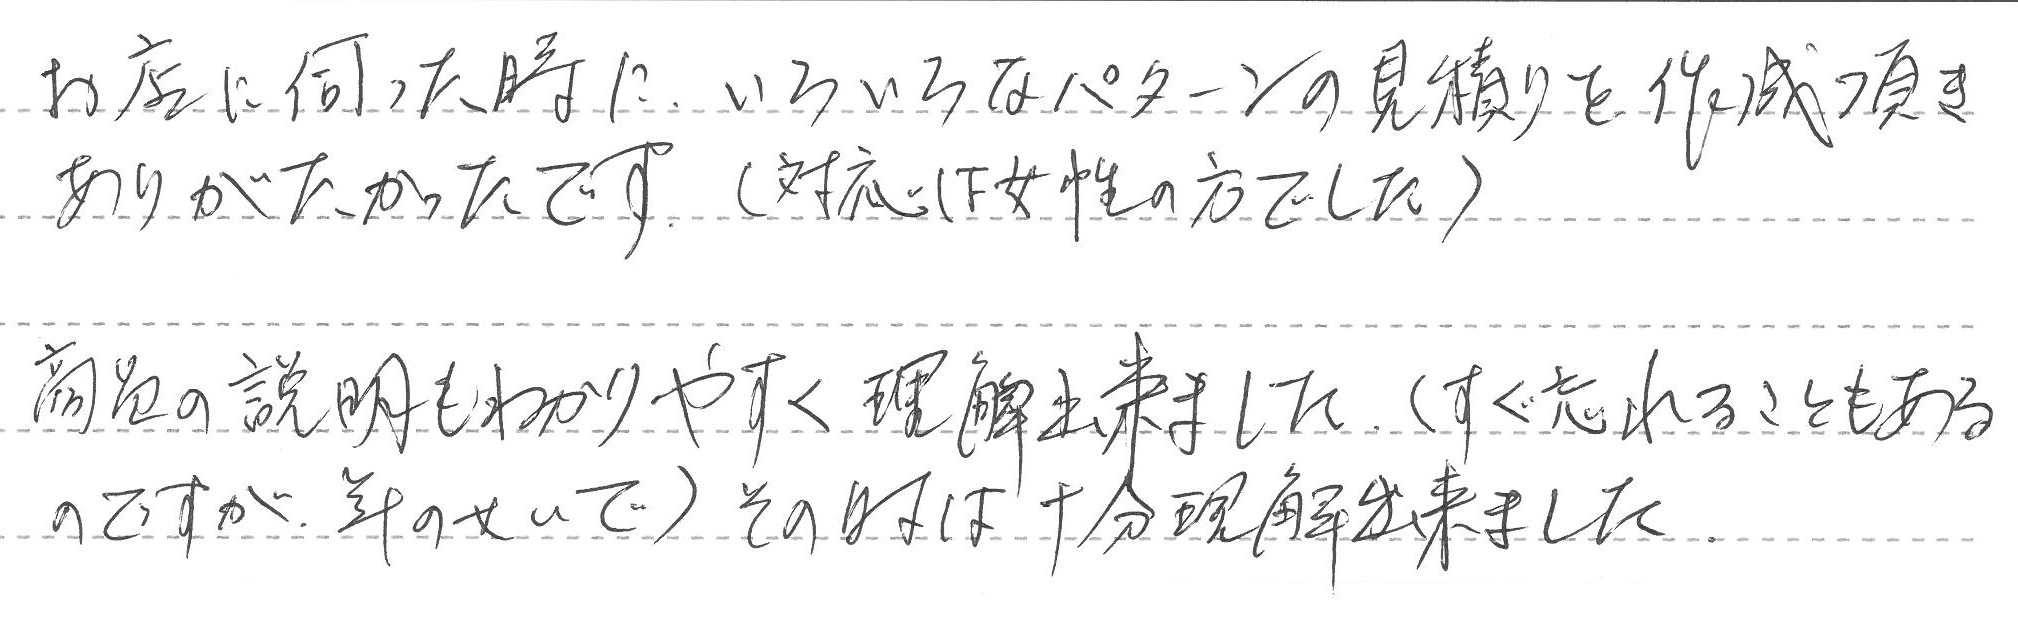 お店に伺った時に、いろいろなパターンの見積りを作成頂き
ありがたかったです。(対応は女性の方でした)
商品の説明もわかりやすく理解出来ました。(すぐ忘れることもある
のですが、年のせいで)その時は十分理解出来ました。